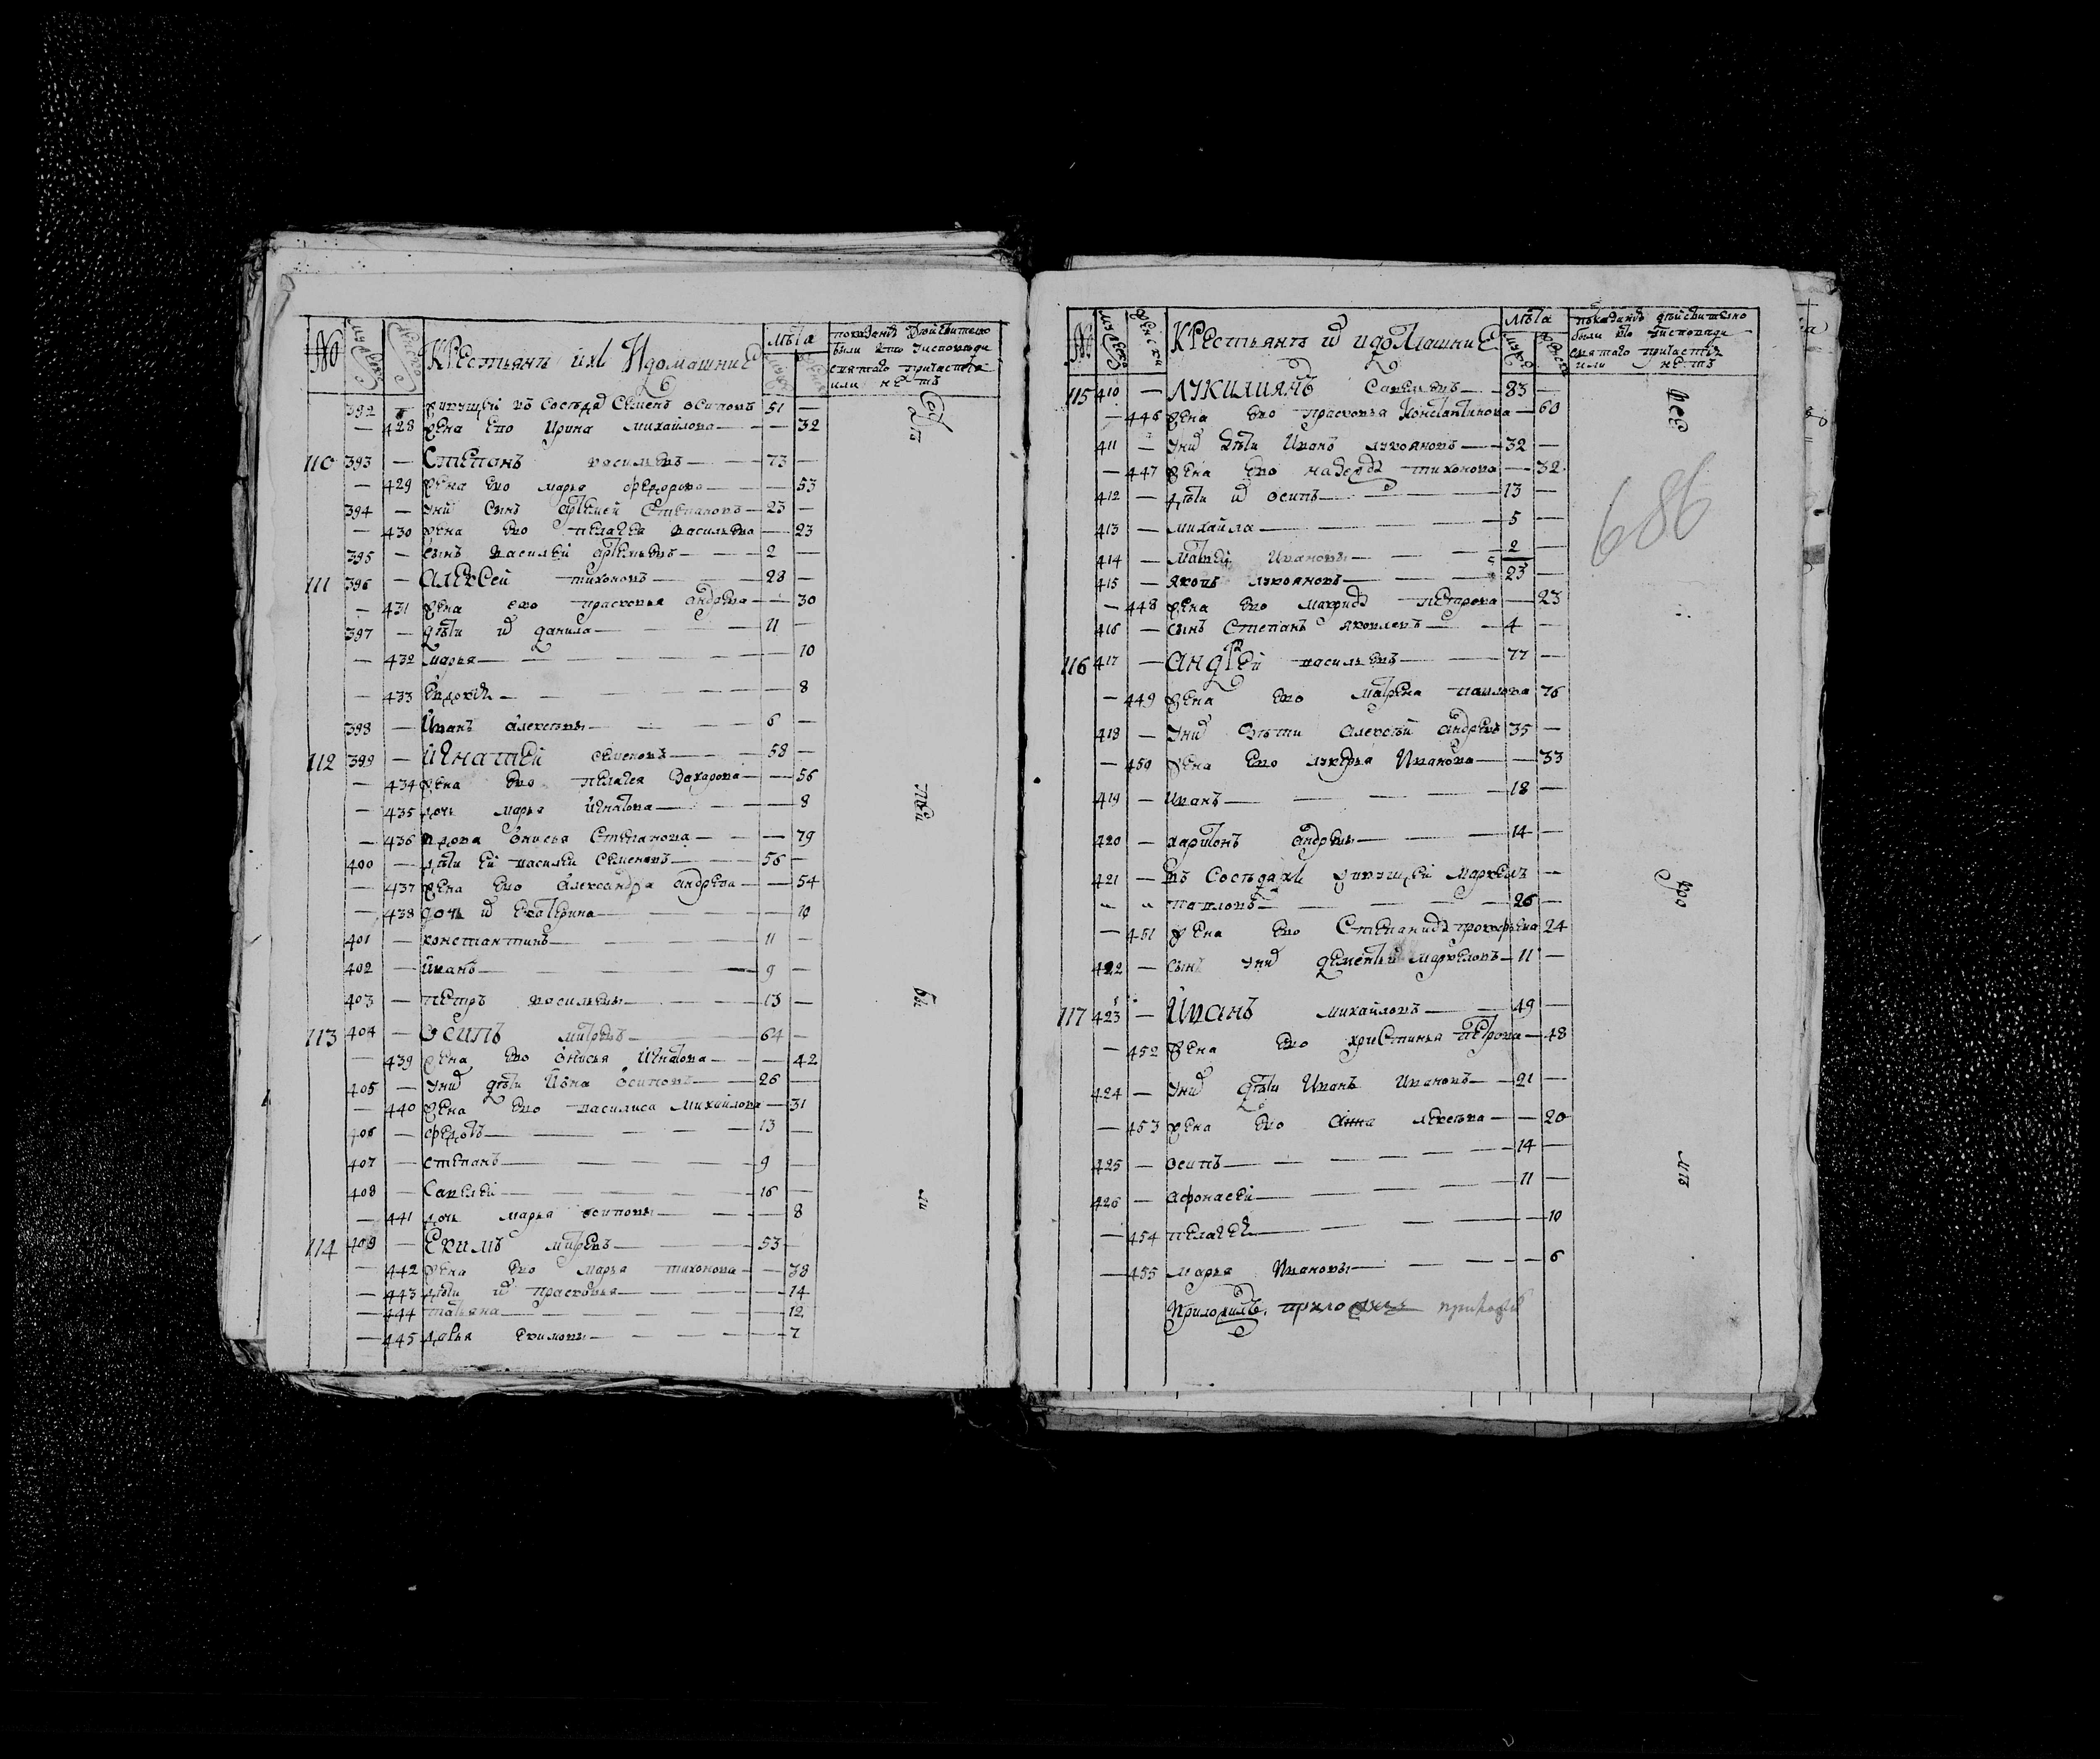 № мужеска женска Крестьянъ ихъ И домашниЕ лѣта мужс женс показанiе дѣйствително были кто уисповѣди святаго причастiя или нетъ
392 — живущей въ соседах Семенъ осиповъ 51 —
— 428 жена ево Ирина михайлова — 32
110 393 — Степанъ васильевъ 73 —
— 429 жена ево марья федорова — 53
394 — унихъ сынъ артемей Степановъ 23 —
— 430 жена ево пелагея васильева — 23
395 — сынъ василей артемьевъ 2 —
111 396 — Алексей тихоновъ 28 —
— 431 жена ево прасковья андрева — 30
397 — дѣти их данила 11 —
— 432 марья — 10
— 433 Евдокия — 8
398 — Иванъ алексѣевы 6 —
112 399 — Игнатей семеновъ 58 —
— 434 жена ево пелагея Захарова — 56
— 435 дочь марья Игнатова — 8
— 436 вдова анисья Степанова — 79
400 — дѣти ей василей Семеновъ 56 —
— 437 жена ево александра андрева — 54
— 438 дочь их екатерина — 10
401 — константинъ 11 —
402 — Иванъ 9 —
403 — петръ васильевы 13 —
113 404 — Осипъ митревъ 64 —
— 439 жена ево анисья Игнатова — 42
405 — унихъ дѣти Иона осиповъ 26 —
— 440 жена ево василиса Михайлова — 31
406 — федотъ 13 —
407 — степанъ 9 —
408 — Савелей 16 —
— 441 дочь марья осиповы — 8
114 409 — Екимъ митревъ 53 —
— 442 жена ево марья тихонова — 38
— 443 дѣти их прасковья — 14
— 444 татьяна — 12
— 445 дарья екимовы — 7
№ мужеска женски Крестьянъ их и домашниЕ лѣта мужес женска показанiе дѣйствително были кто уисповѣди святаго причастiя или нетъ
115 410 — Лукилиянъ Савельевъ 83 —
— 446 жена ево прасковья Константинова — 60
411 — уних дѣти Иванъ лукояновъ 32 —
— 447 жена ево надежда тихонова — 32
412 — дѣти их осипъ 13 —
413 — михайла 5 —
414 — матвей Ивановы 2 —
415 — яковъ лукояновъ 23 —
— 448 жена ево маврида петрова — 23
416 — сынъ Степанъ яковлевъ 4 —
116 417 — Андрей васильевъ 77 —
— 449 жена ево матрена павлова 76
418 — уних дѣти алексѣй андревъ 35 —
— 450 жена ево лукерья Иванова — 33
419 — Иванъ 18 —
420 — харитонъ андревы 14 —
421 — въ Соседахъ живущей маркелъ —
павловъ 26 —
— 451 жена ево Степанида прокофьева 24
422 — сынъ уних дементей Маркеловъ 11 —
117 423 — Иванъ михайловъ 49 —
— 452 жена ево христинья петрова — 48
424 — уних дѣти Иванъ Ивановъ 21 —
— 453 жена ево Анна лексѣева — 20
425 — осипъ 14 —
426 — афонасей 11 —
— 454 пелагея — 10
— 455 марья Ивановы — 6
686